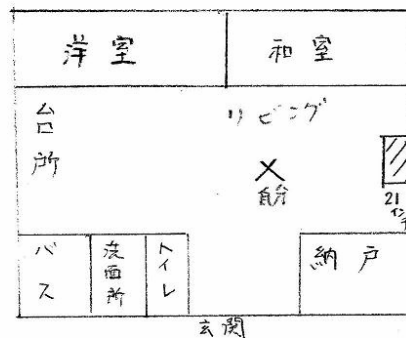 洋室
和室
台所
リビング
自分
21
インチ
バス
洗面所
トイレ
納戸
玄関